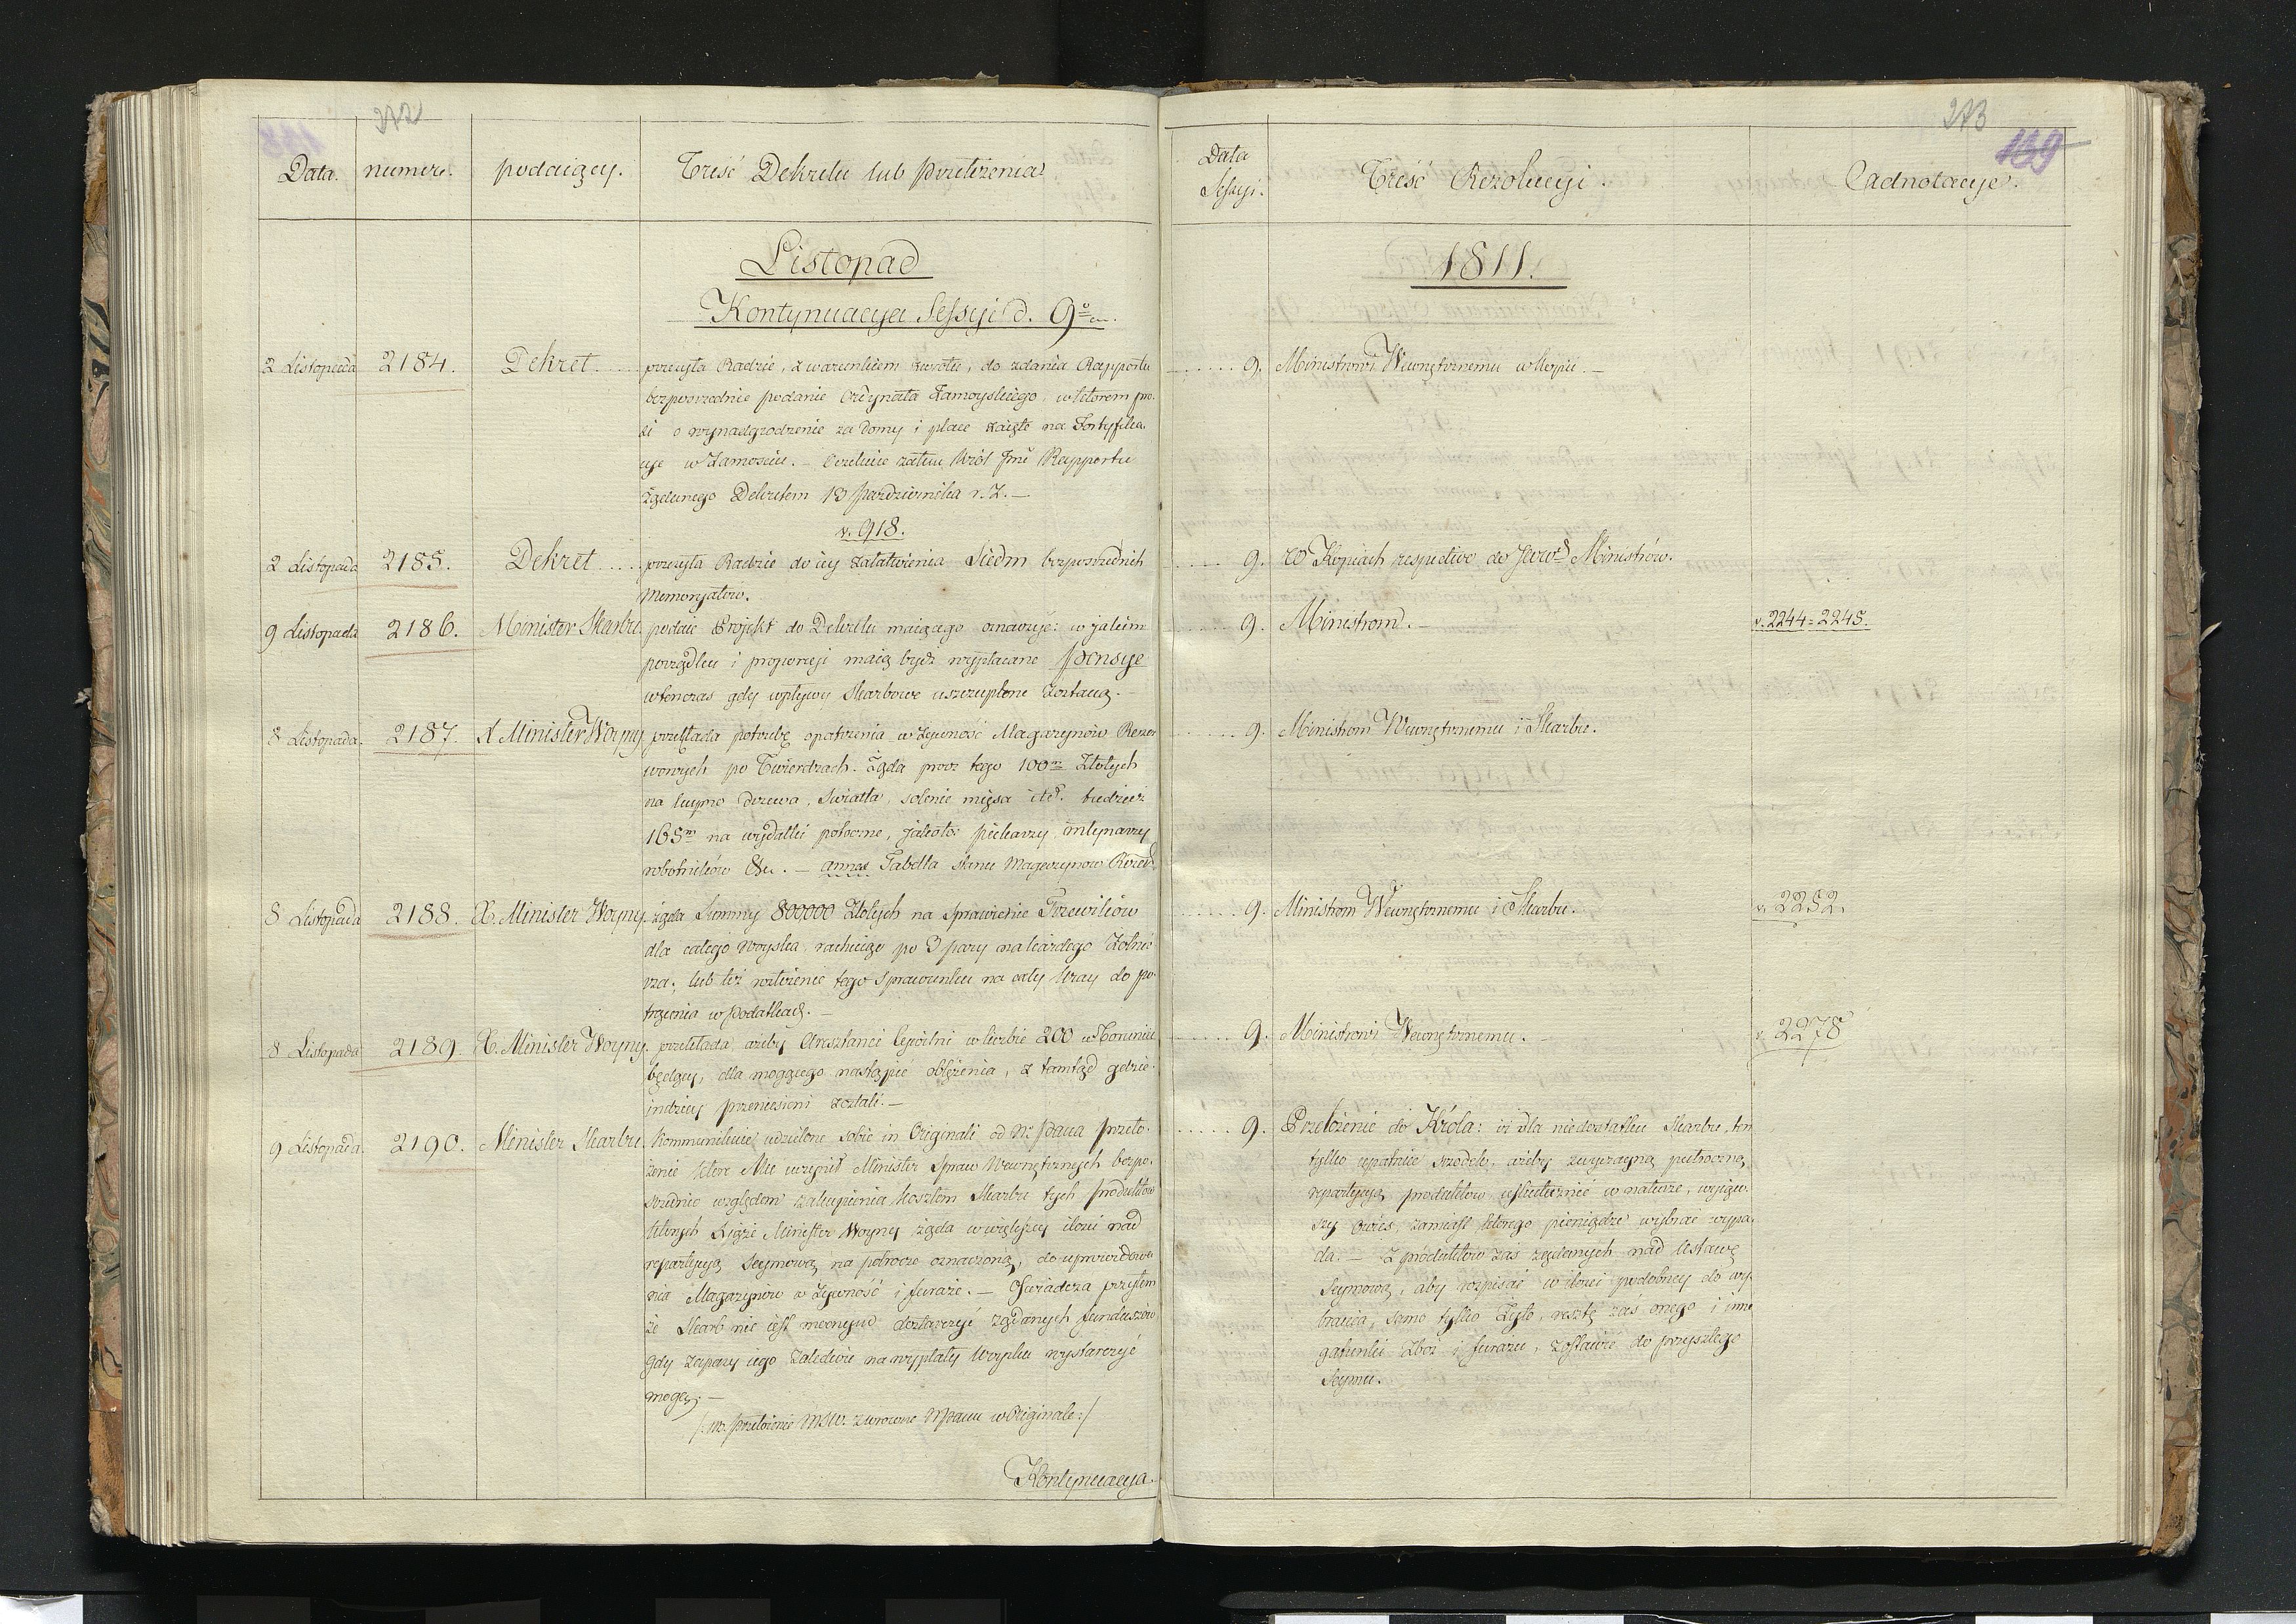 272
Data. numer. podaiący. Treść Dekretu lub Przełożenia
Listopad
Kontynuacya Sessyi d. 9º
2 Listopada 2184. Dekret przesyła Radzie, z warunkiem zwrotu, do zdania Rapportu
bezposrednie podanie Ordynata Zamoyskiego, w ktorem pro-
si o wynadgrodzenie za domy i place zaięte na Fortyfika-
cye w Zamosciu. – Oczekuie zatem Król Jmć Rapportu
żądanego Dekretem 13 Pazdziernika r. z. –
v. 918.
2 Listopada 2185. Dekret przesyła Radzie do iey załatwienia Siedm bezposrednich
Memoryałow.
9 Listopada 2186. Minister Skarbu podaie Projekt do Dekretu maiącego oznaczyć: w jakim
porządku i proporcyi maią bydź wypłacane pensye
wtenczas gdy wpływy Skarbowe uszczuplone zostaną. –
8 Listopada. 2187. X Minister Woyny przekłada potrzebę opatrzenia w żywność Magazynów Rezer-
wowych po Twierdzach. Żąda procz tego 100m Złotych
na kupno drzewa, swiatła, solenie mięsa itd. tudzież
165m na wydatki potoczne, jakoto: piekarzy, młynarzy
robotników &c. – annex Tabella stanu Magazynow
8 Listopada 2188. X. Minister Woyny żąda Summy 800000 Złotych na sprawienie Trzewików
dla całego Woyska, rachuiąc po 3 pary na każdego Żołnie-
rza; lub też rozłożenie tego sprawunku na cały Kray do po-
trącenia w podatkach. –
8 Listopada 2189. X. Minister Woyny. przekłada ażeby Aresztanci Cywilni w liczbie 200 w Toruniu
będący, dla mogącego nastąpić oblężenia, z tamtąd gdzie-
indziey przeniesieni zostali. –
9 Listopada. 2190. Minister Skarbu. Kommunikuie udzielone sobie in Originali od N. Pana przeło-
żenie które Mu uczynił Minister Spraw Wewnętrznych bezpo-
srednio względem zakupienia kosztem Skarbu tych produktów
których Xiąże Minister Woyny żąda w większey ilosci nad
repartycyą Seymową na połrocze oznaczoną, do uprowidowa-
nia Magazynow w żywność i furaże. – Oswiadcza przytem
że Skarb nie iest mocnym dostarczyć żądanych funduszow
gdy zapasy iego zaledwie na wypłaty Woysku wystarczyć
mogą. –
/: NB. przełożenie MSW. zwrocone NPanu w Originale :/
Kontynuacya.
273
139
Data
Sessyi. Treść Rezolucyi. Adnotacye.
1811.
9. Ministrowi Wewnętrznemu w kopii. –
9. w Kopiach respective do Ministrów.
9. Ministrom. – v. 2244=2245.
9. Ministrom Wewnętrznemu i Skarbu.
9. Ministrom Wewnętrznemu i Skarbu. v. 2252.
9. Ministrowi Wewnętrznemu. – v. 2278
9. Przełożenie do Króla: iż dla niedostatku Skarbu, ten
tylko upatruie srzodek, ażeby zwyczayną pułroczną
repartycyą produktow uskutecznić w naturze, wyiąw-
szy Owies, zamiast ktorego pieniądze wybrać wypa-
da. – Z produktow zaś żądanych nad Ustawę
Seymową, aby rozpisać w ilosci podobney do wy-
brania, samo tylko Żyto, resztę zaś onego i inne
gatunki Zboż i furażu, zostawić do przyszłego
Seymu.